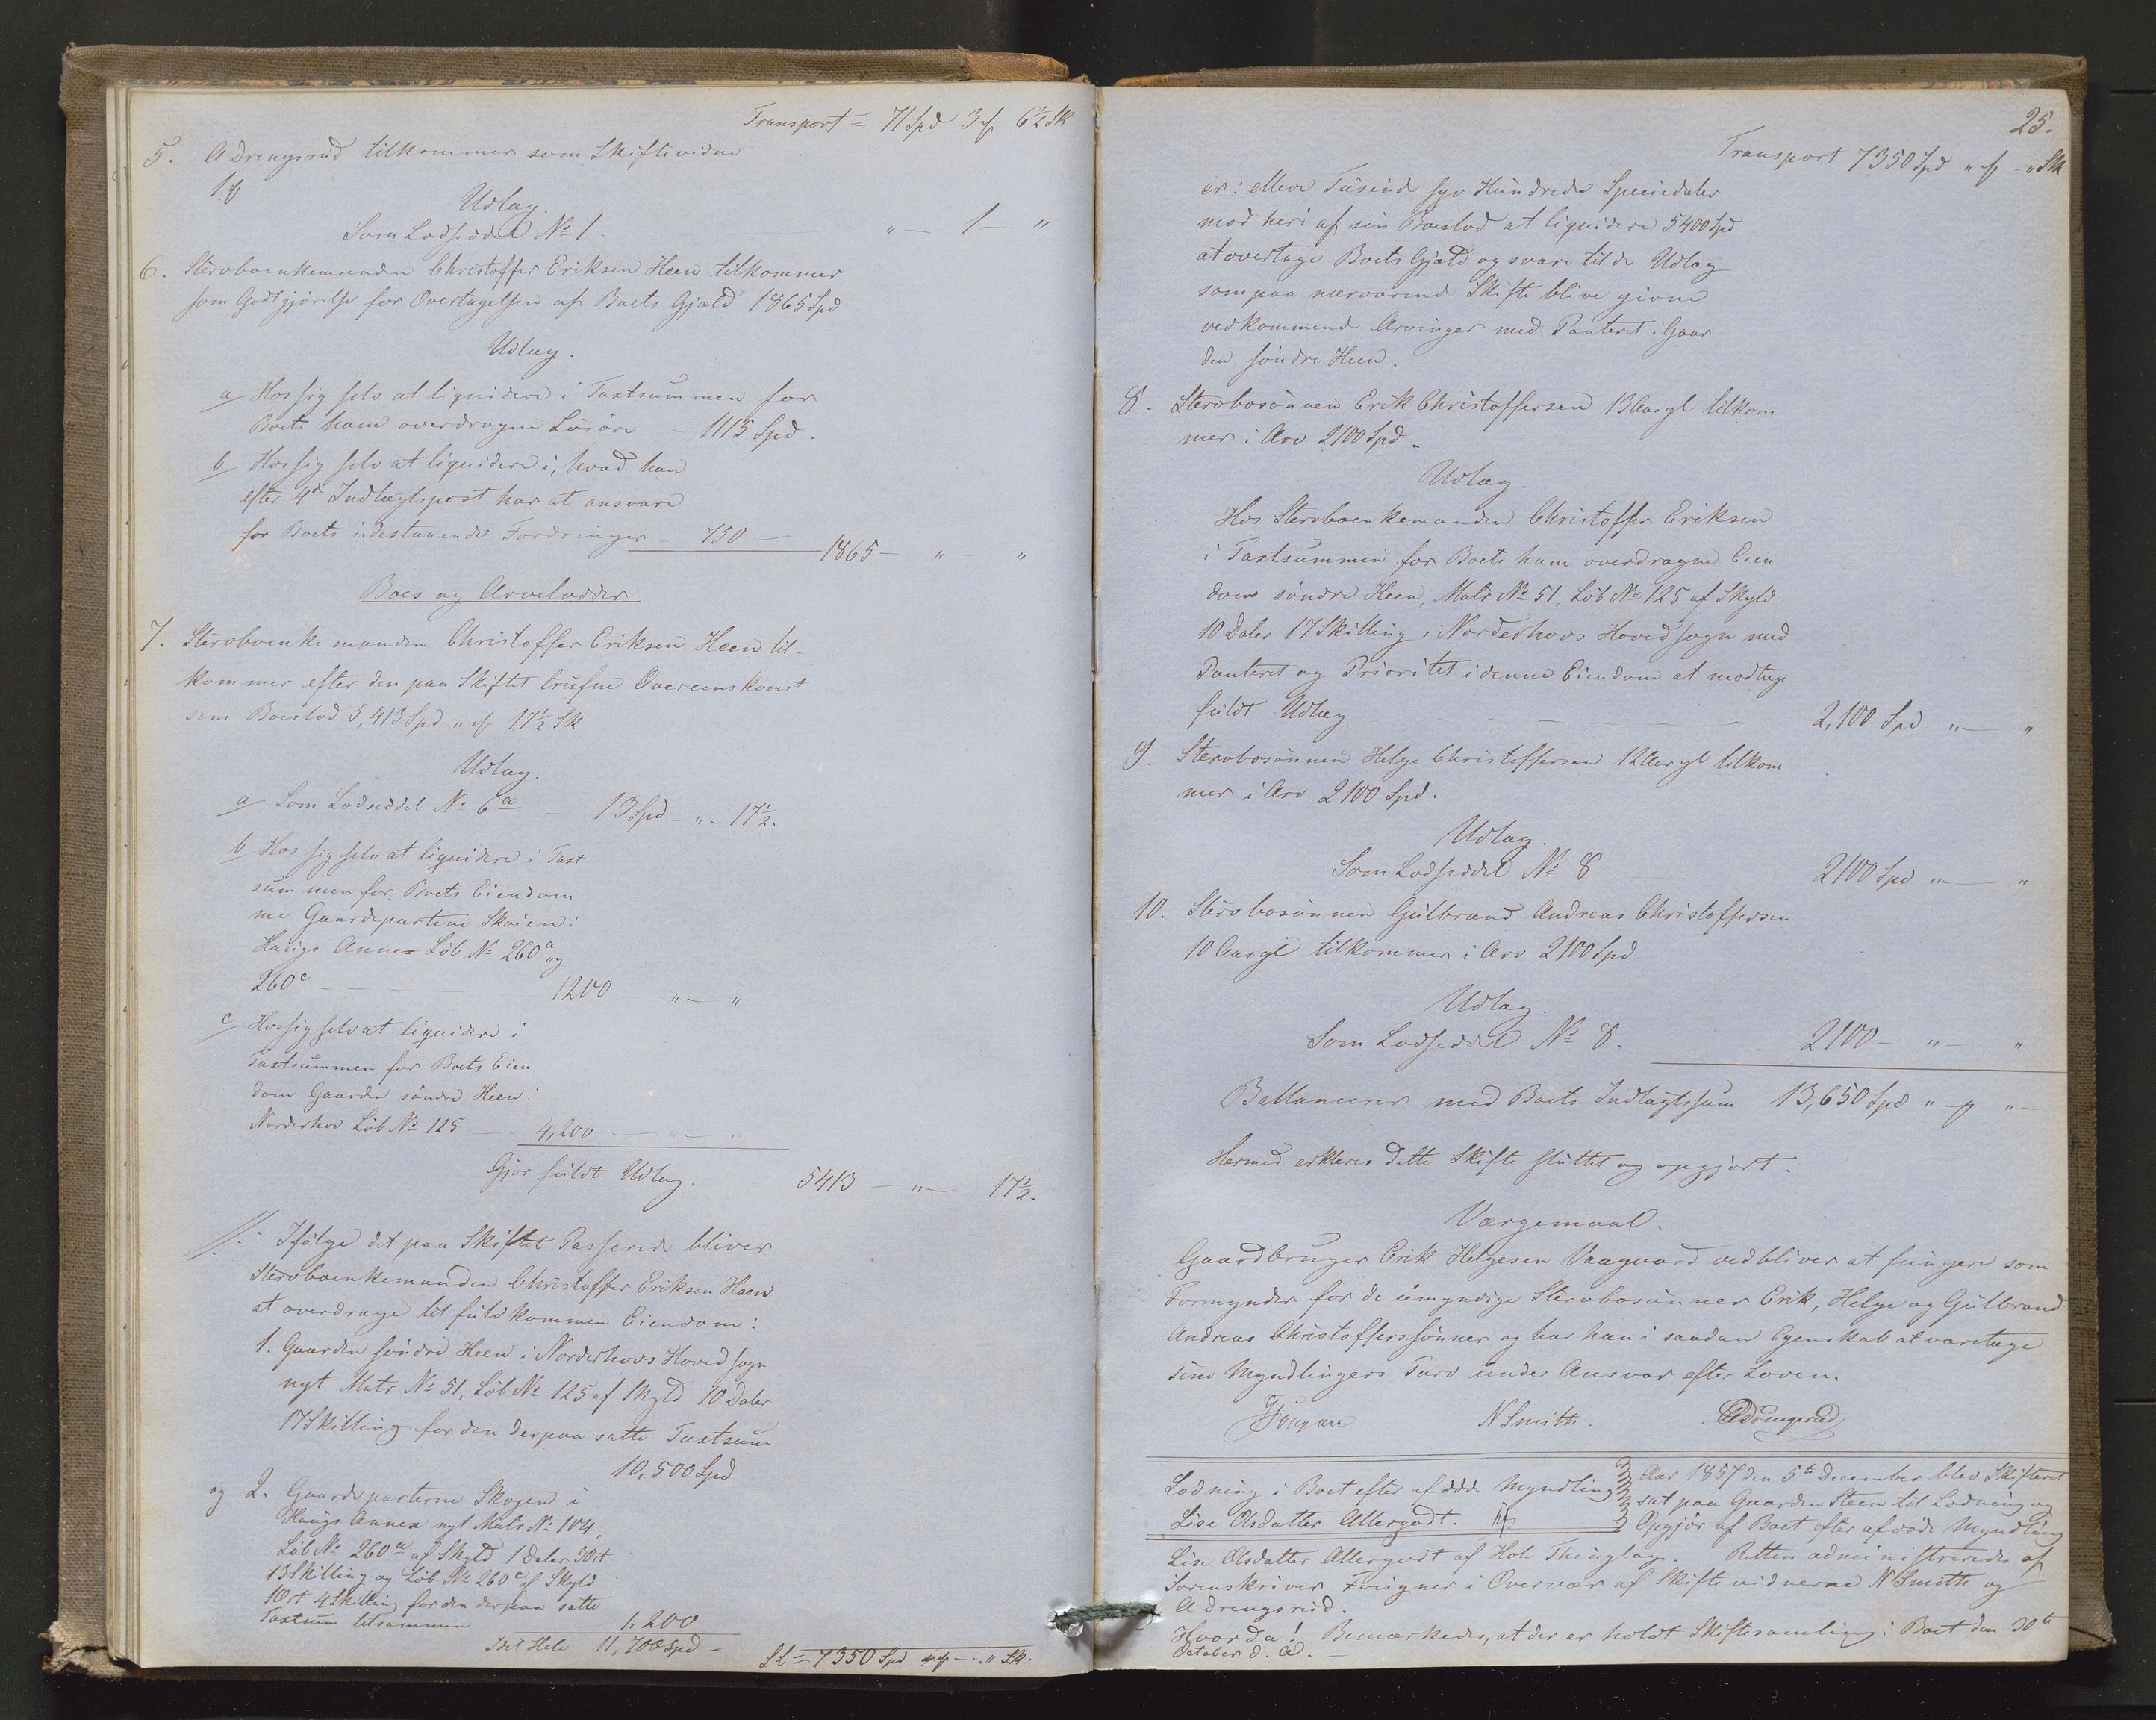 Transport = 71 Spd 3 ₰ 6½ Sk
5. ADrengsrud tilkommer som Skiftevidne
1 ₰
Udlæg.
Som Lodseddel No 1. " — 1 — "
6. Stervboenkemanden Christoffer Eriksen Heen tilkommer
som Godtgjörelse for Overtagelsen af Boets Gjæld 1865 Spd
Udlæg.
a/ Hos sig selv at liquidere i Taxtsummen for
Boets ham overdragne Lösöre - 1115 Spd.
b/ Hos sig selv at liquidere i, hvad han
efter 4de Indtægtspost har at ansvare
for Boets udestaaende Fordringer - 750 — 1865 — " — "
Boes og Arvelodder
7. Stervboenkemanden Christoffer Eriksen Heen til-
kommer efter den paa Skiftet trufne Overeenskomst
som Boeslod 5,413 Spd " ₰ 17½ Sk
Udlæg.
a/ Som Lodseddel No 6a — 13 Spd - " - 17½.
b/ Hos sig selv at liquidere i Taxt
summen for Boets Eiendom
me Gaardeparterne Skoien i
Haugs Annex Löb. No 260a og
260c — 1200 — " — "
c/ Hos sig selv at liquidere i
Taxtsummen for Boets Eien
dom Gaarden söndre Heen i
Norderhov Löb No 125 — 4,200 — " — "
Gjör fuldt Udlæg. 5413 — " — 17½.
//: Ifölge det paa Skiftet Passerede bliver
Stervboenkemanden Christoffer Eriksen Heen
at overdrage til fuldkommen Eiendom:
1. Gaarden söndre Heen i Norderhovs Hovedsogn
nyt Matr No 51, Löb No 125 af Skyld 10 Daler
17 Skilling for den derpaa satte Taxtsum
10,500 Spd
og 2. Gaardeparterne Skogen i
Haugs Annex nyt Matr No 104,
Löb No 260a af Skyld 1 Daler 3 Ort
13 Skilling og Löb No 260c af Skyld
1 Ort 4 Skilling for den derpaa satte
Taxtsum tilsammen 1,200
Idet Hele 11,700 Spd —
Sl = 7350 Spd " ₰ — " Sk.
25.
Transport 7350 Spd " ₰ - " Sk
er: elleve Tusind syv Hundrede Speciedaler
mod heri af sin Boeslod at liquidere 5400 Spd
at overtage Boets Gjæld og svare til de Udlæg
som paa nærværende Skifte blive givne
vedkommende Arvinger med Panteret i Gaar
den söndre Heen.
8. Stervbosönnen Erik Christoffersen 13 Aar gl tilkom
mer i Arv 2100 Spd.
Udlæg.
Hos Stervboenkemanden Christoffer Eriksen
i Taxtsummen for Boets ham overdragne Eien
dom söndre Heen, Matr No 51, Löb No 125 af Skyld
10 Daler 17 Skilling i Norderhovs Hovedsogn med
Panteret og Prioritet i denne Eiendom at modtage
fuldt Udlæg — — — — — 2,100 Spd " — "
9. Stervbosönnen Helge Christoffersen 12 Aar gl tilkom
mer i Arv 2100 Spd.
Udlæg.
Som Lodseddel No 8 — 2100 Spd " — "
10. Stervbosönnen Gulbrand Andreas Christoffersen
10 Aar gl tilkommer i Arv 2100 Spd
Udlæg.
Som Lodseddel No 8. 2100 — " — "
Ballancerer med Boets Indtægtssum 13,650 Spd " ₰ " —
Hermed erklæres dette Skifte sluttet og opgjort.
Værgemaal.
Gaardbruger Erik Helgesen Vaagaard vedbliver at fungere som
Formynder for de umyndige Stervbosönner Erik, Helge og Gulbrand
Andreas Christofferssönner og har han i saadan Egenskab at varetage
sine Myndlingers Tarv under Ansvar efter Loven.
Fougner N Smith. ADrengsrud
Lodning i Boet efter afdöde Myndling
Lise Olsdatter Allergodt.
Aar 1857 den 5te December blev Skifteret
sat paa Gaarden Steen til Lodning og
Opgjör af Boet efter afdöde Myndling
Lise Olsdatter Allergodt af Hole Thinglag. Retten administreredes af
Sorenskriver Fougner i Overvær af Skiftevidnerne N Smith og
A Drengsrud.
Hvorda! Bemærkedes, at der er holdt Skiftesamling i Boet den 30te
October d. A. —